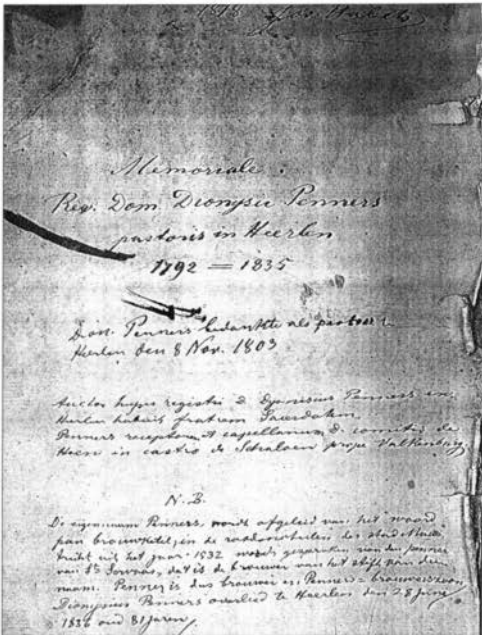 1898 Jos. Habets
Memoriale
Rev. Dom. Dionysii Penners
pastoris in Heerlen
1792 = 1835
Dom. Penners bedankte als pastoor
Heerlen den 8 Nov. 1803
Auctor hujus registri d. Dyonisius Penners in
Heerlen habuit fratrem Sacerdotem
Penners receptorem et capellanum d. comitis de
Hoen in castro de Schaloen prope Valkenburg.
N.B.
De eigennaam Penners, wordt afgeleid van het woord
pan brouwketel; in de raadsnotulen der stad Maas
tricht uit het jaar 1532 wordt gesproken van den penner
van St Servaas, dat is de brouwer van het stift van dien
naam. Penner is dus brouwer en Penners = brouwerszoon
Dionysius Penners overleed te Heerlen den 28 Juni
1836 oud 81 jaren